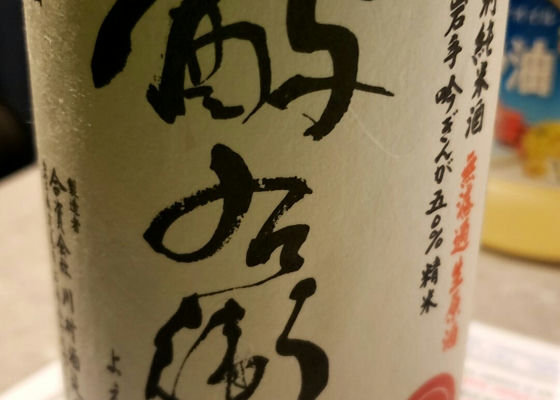 別純米酒 無濾過生原酒
岩手吟ぎんが五〇%精米
酔右衛
よえ
製造者
合資会社川村酒
油